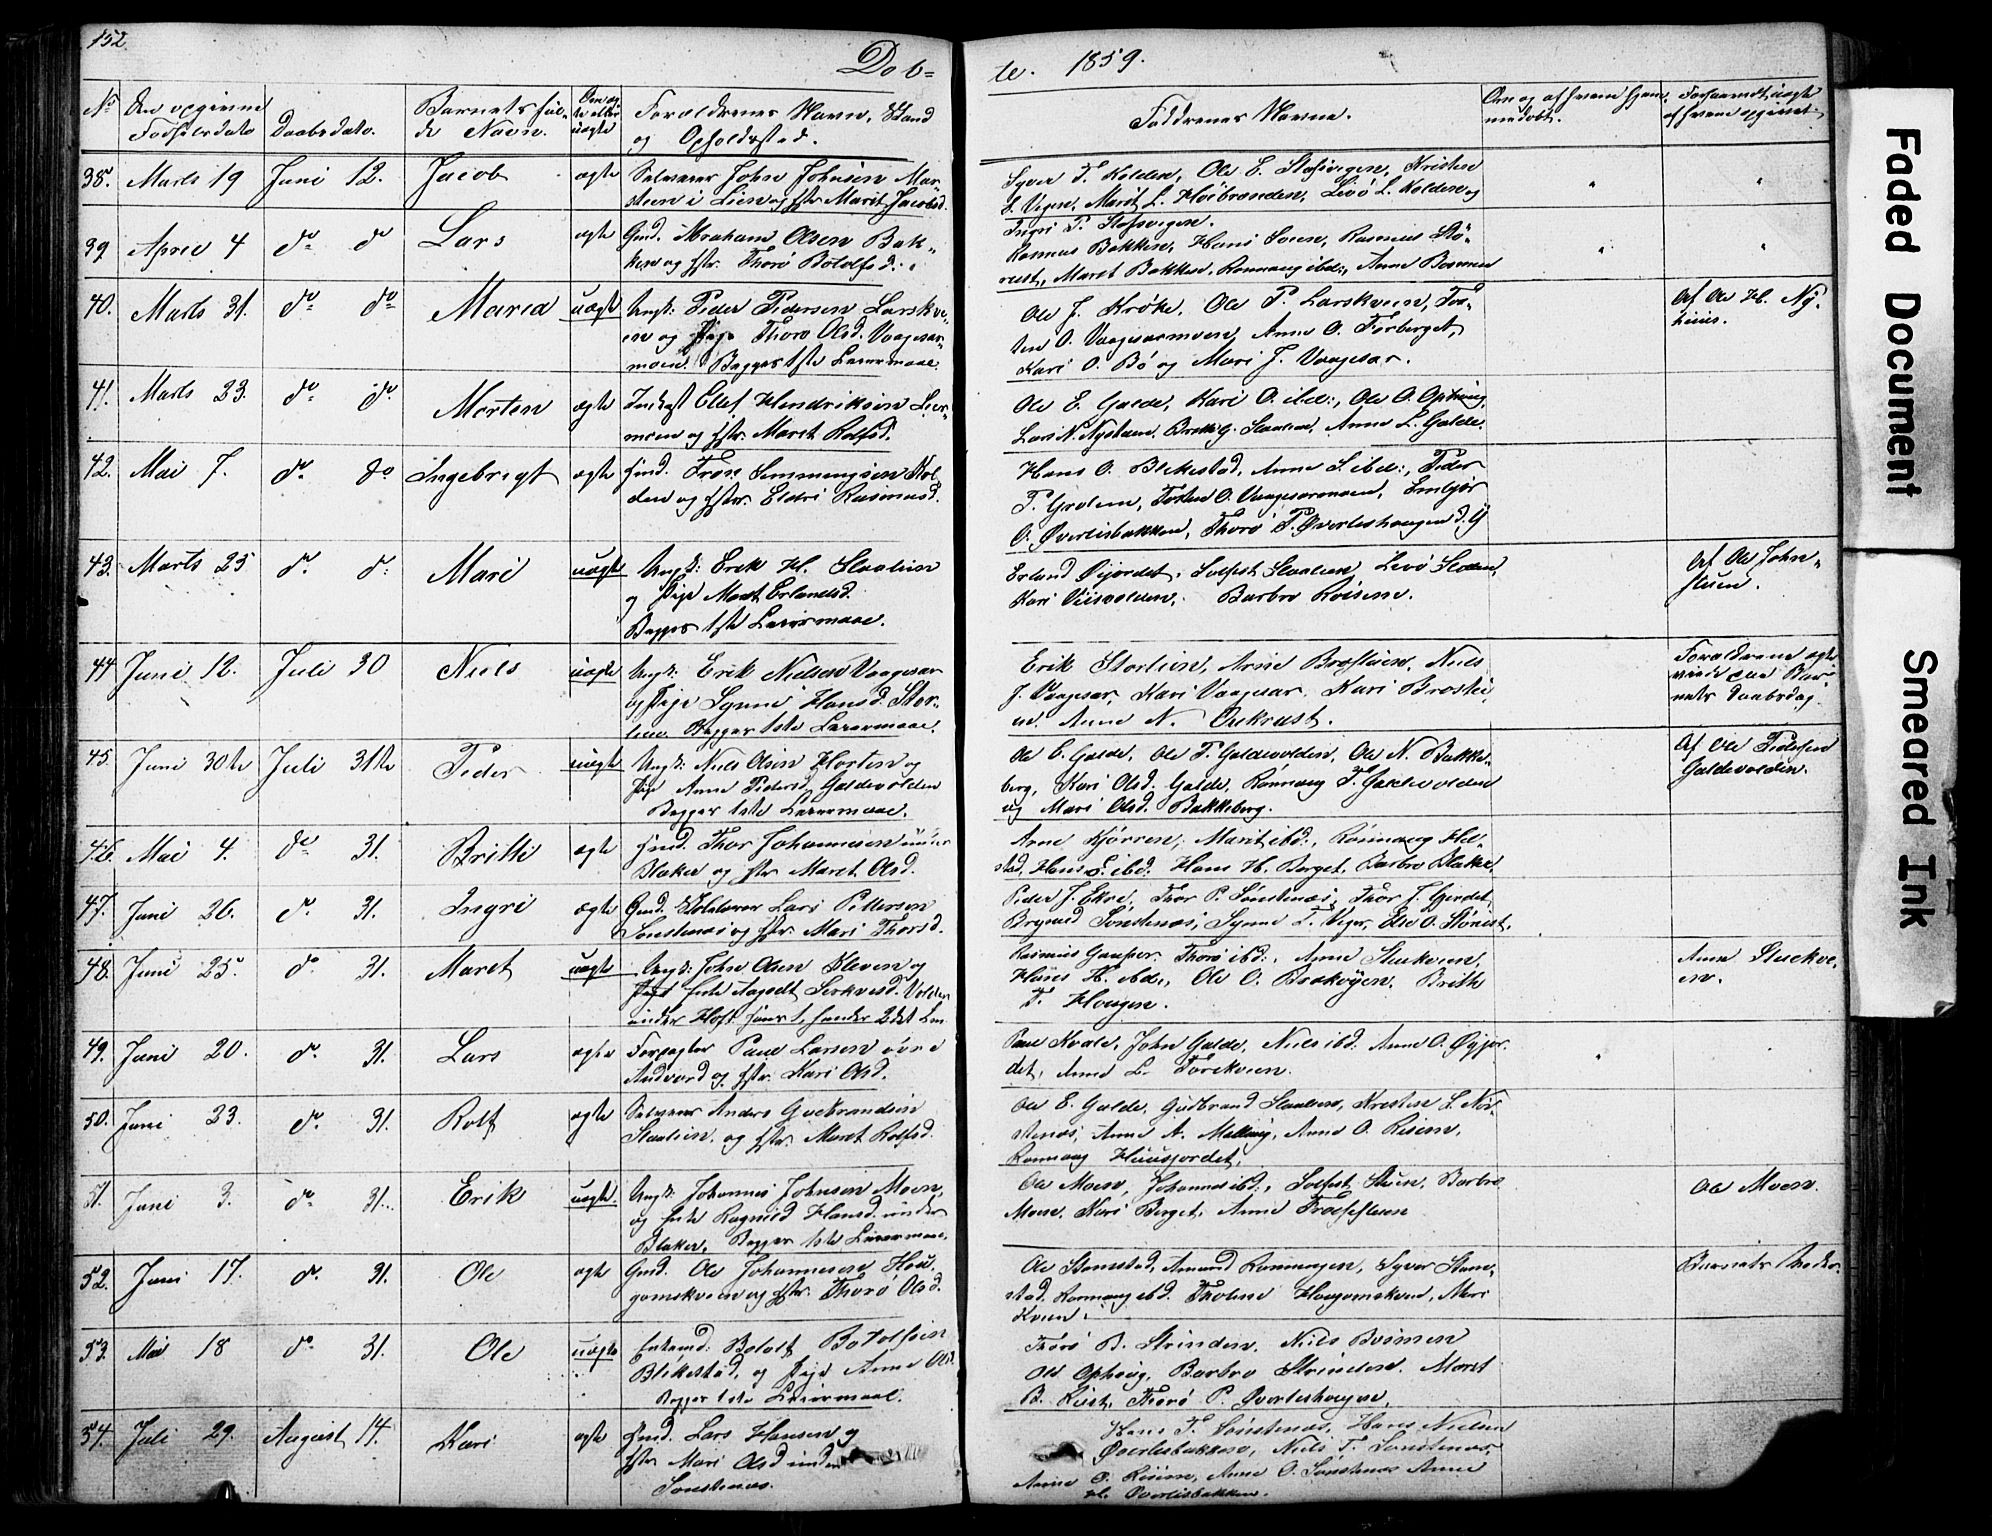 152.
Döb-
te. 1859.
No Den opgivne Fødselsdato
Daabsdato.
Barnets fulde Navn.
Om ægte eller uægte
Forældrenes Navn, Stand og Opholdssted.
Faddrenes Navne.
Om og af hvem hjemmedøbt.
Forsaavidt uægte af hvem opgivet
38. Marts 19 Juni 12. Jacob ægte Selveier John Johnsen Mar-
steen i Lien og Hstr Marit Jacobsd.
Syver T. Kolden, Ole E. Stafsvegen, Kristen
S. Vegen, Marit L. Høibranden, Livø L. Kolden og
Ingri P. Stafsvegen.
39. April 4 do do Lars ægte Gmd. Abraham Olsen Bak-
ken og Hstr. Thorø Botolfsd.
Rasmus Bakken, Hans Soen, Rasmus Stø-
rust, Maret Bakken, Rønnaug ibd:, Anne Bosmen
40. Marts 31. do do Maria uægte Ungk: Peder Pedersen Larskve-
en og Pige Thorø Olsd. Vaagesar-
moen. Begges 1ste Leiermaal.
Ole J. Krøke, Ole P. Larskveen, Tor-
sten O. Vaagesarmoen, Anne O. Forberget,
Kari O. Bø og Mari J. Vaagesar.
Af Ole H. Ny-
huus.
41. Marts 23. do do Morten ægte Inderst Ellef Hendriksen Lier-
moen og Hstr. Maret Rolfsd.
Ole E. Galde, Kari O. ibd:, Ole O. Ophaug,
Lars N. Nystuen, Brith G. Slaalien, Anne L. Galde.
42. Mai 7. do do Ingebrigt ægte Hmd. Fron Simmengsen Kol-
den og Hstr. Eldri Rasmusd.
Hans O. Blekestad, Anne S. ibd:, Peder
P. Grolien, Torsten O. Vaagesarmoen, Embjør
O. Øverlisbakken, Thorø P. Øverlishaugen d. y
43. Marts 25 do do Mari uægte Ungk: Erik H. Slaalien
og Pige Maret Erlandsd.
Begges 1ste Leiermaal.
Erland Øijordet, Solfest Slaalien, Livø Sloden,
Kari Viisvolden, Barbro Roisene.
Af Ole John-
stuen.
44 Juni 12. Juli 30 Niels uægte Ungk: Erik Nielsen Vaagesar
og Pige Synne Hansd. Stor-
lien. Begges 1ste Leiermaal.
Erik Storlien, Arne Brostuen, Niels
J. Vaagesar, Kari Vaagesar, Kari Brostu-
en, Anne N. Orkrust.
Forældrene ægte
viede paa Bar-
nets Daabsdag.
45. Juni 30te Juli 31te Peder uægte Ungk: Niels Olsen Horten og
Pige Anne Pedersd. Galdevolden
Begges 1ste Leiermaal.
Ole E. Galde, Ole P. Galdevolden, Ole N. Bakke-
berg, Kari Olsd. Galde, Rønnaug P. Galdevolden
og Mari Olsd. Bakkeberg.
Af Ole Pedersen
Galdevolden.
46. Mai 4. do 31. Brithe ægte Hmd. Thor Johannesen under
Blaker og Hstr Maret Olsd.
Arne Kjørren, Marit ibd:, Rønnaug Hel-
stad, Hans S. ibd. Hans H. Berget, Barbro Blaker.
47. Juni 26. do 31. Ingri ægte Gmd. Lars Pedersen
Sønstenæs og Hstr. Mari Thorsd.
Peder J. Ekre, Thor P. Sønstenæs, Thor J. Gjerdet,
Brynild Sønstenæs, Synne T. Veger, Else O. Stønest.
48. Juni 25. do 31. Maret uægte Ungk: John Olsen Kleven og
Pige Aagodt Serkvesd. Volden
under Hoft hans 1, hendes 2det Lm
Rasmus Gaupar. Thorø ibd:, Anne Stuekveen,
Hans H. ibd:, Ole O. Brakøyen, Brithe
T. Haugen.
Anne Stuekve-
en.
49. Juni 20. do 31. Lars ægte Forpagter Paul Larsen øvre
Andvord og Hstr. Kari Olsd.
Paul Kvale, John Galde, Niels ibd: Anne O. Øyjor-
det, Anne L. Forekveen.
50. Juni 23. do 31. Rolf ægte Selveier Anders Gudbrandsen
Slaalien, og Hstr. Maret Rolfsd.
Ole E. Galde, Gudbrand Slaalien, Kristen S. Nør-
stenæs, Anne A. Melling, Anne O. Risem,
Rønnaug Huusjordet.
51. Juni 3. do 31. Erik uægte Ungk: Johannes Johnsen Moen,
og Enke Ragnild Hansd. under
Blaker. Begges 1ste Leiermaal.
Ole Moen, Johannes ibd:, Solfest Stuen, Barbro
Moen, Kari Berget, Anne
Ole Moen.
52. Juni 17. do 31. Ole ægte Gmd. Ole Johannesen Hou-
gomskveen og Hstr. Thorø Olsd.
Ole Stamstad, Amund Rønnaugen, Syver Stam-
stad. Rønnaug ibd. Tholine Hougomskveen, Mari
Kveen.
Barnets Moder.
53. Mai 18 do 31. Ole uægte Enkemd: Botolf Botolfsen
Blekestad, og Pige Anne Olsd.
Begges 1ste Leiermaal.
Thorø B. Strinden, Niels Bosmen
Ole Ophaug, Barbro Strinden. Maret
B. Rust, Thorø P. Øverlishaugen.
54. Juli 29. August 14. Kari ægte Hmd. Lars Hansen og
Hstr Mari Olsd under
Sønstenæs.
Hans T. Sønstenæs, Hans Nielsen
Øverlisbakken, Niels T. Sønstenæs,
Anne O. Risem, Anne O. Sønstenæs Anne
H. Øverlisbakken.
Faded Document
Smeared Ink